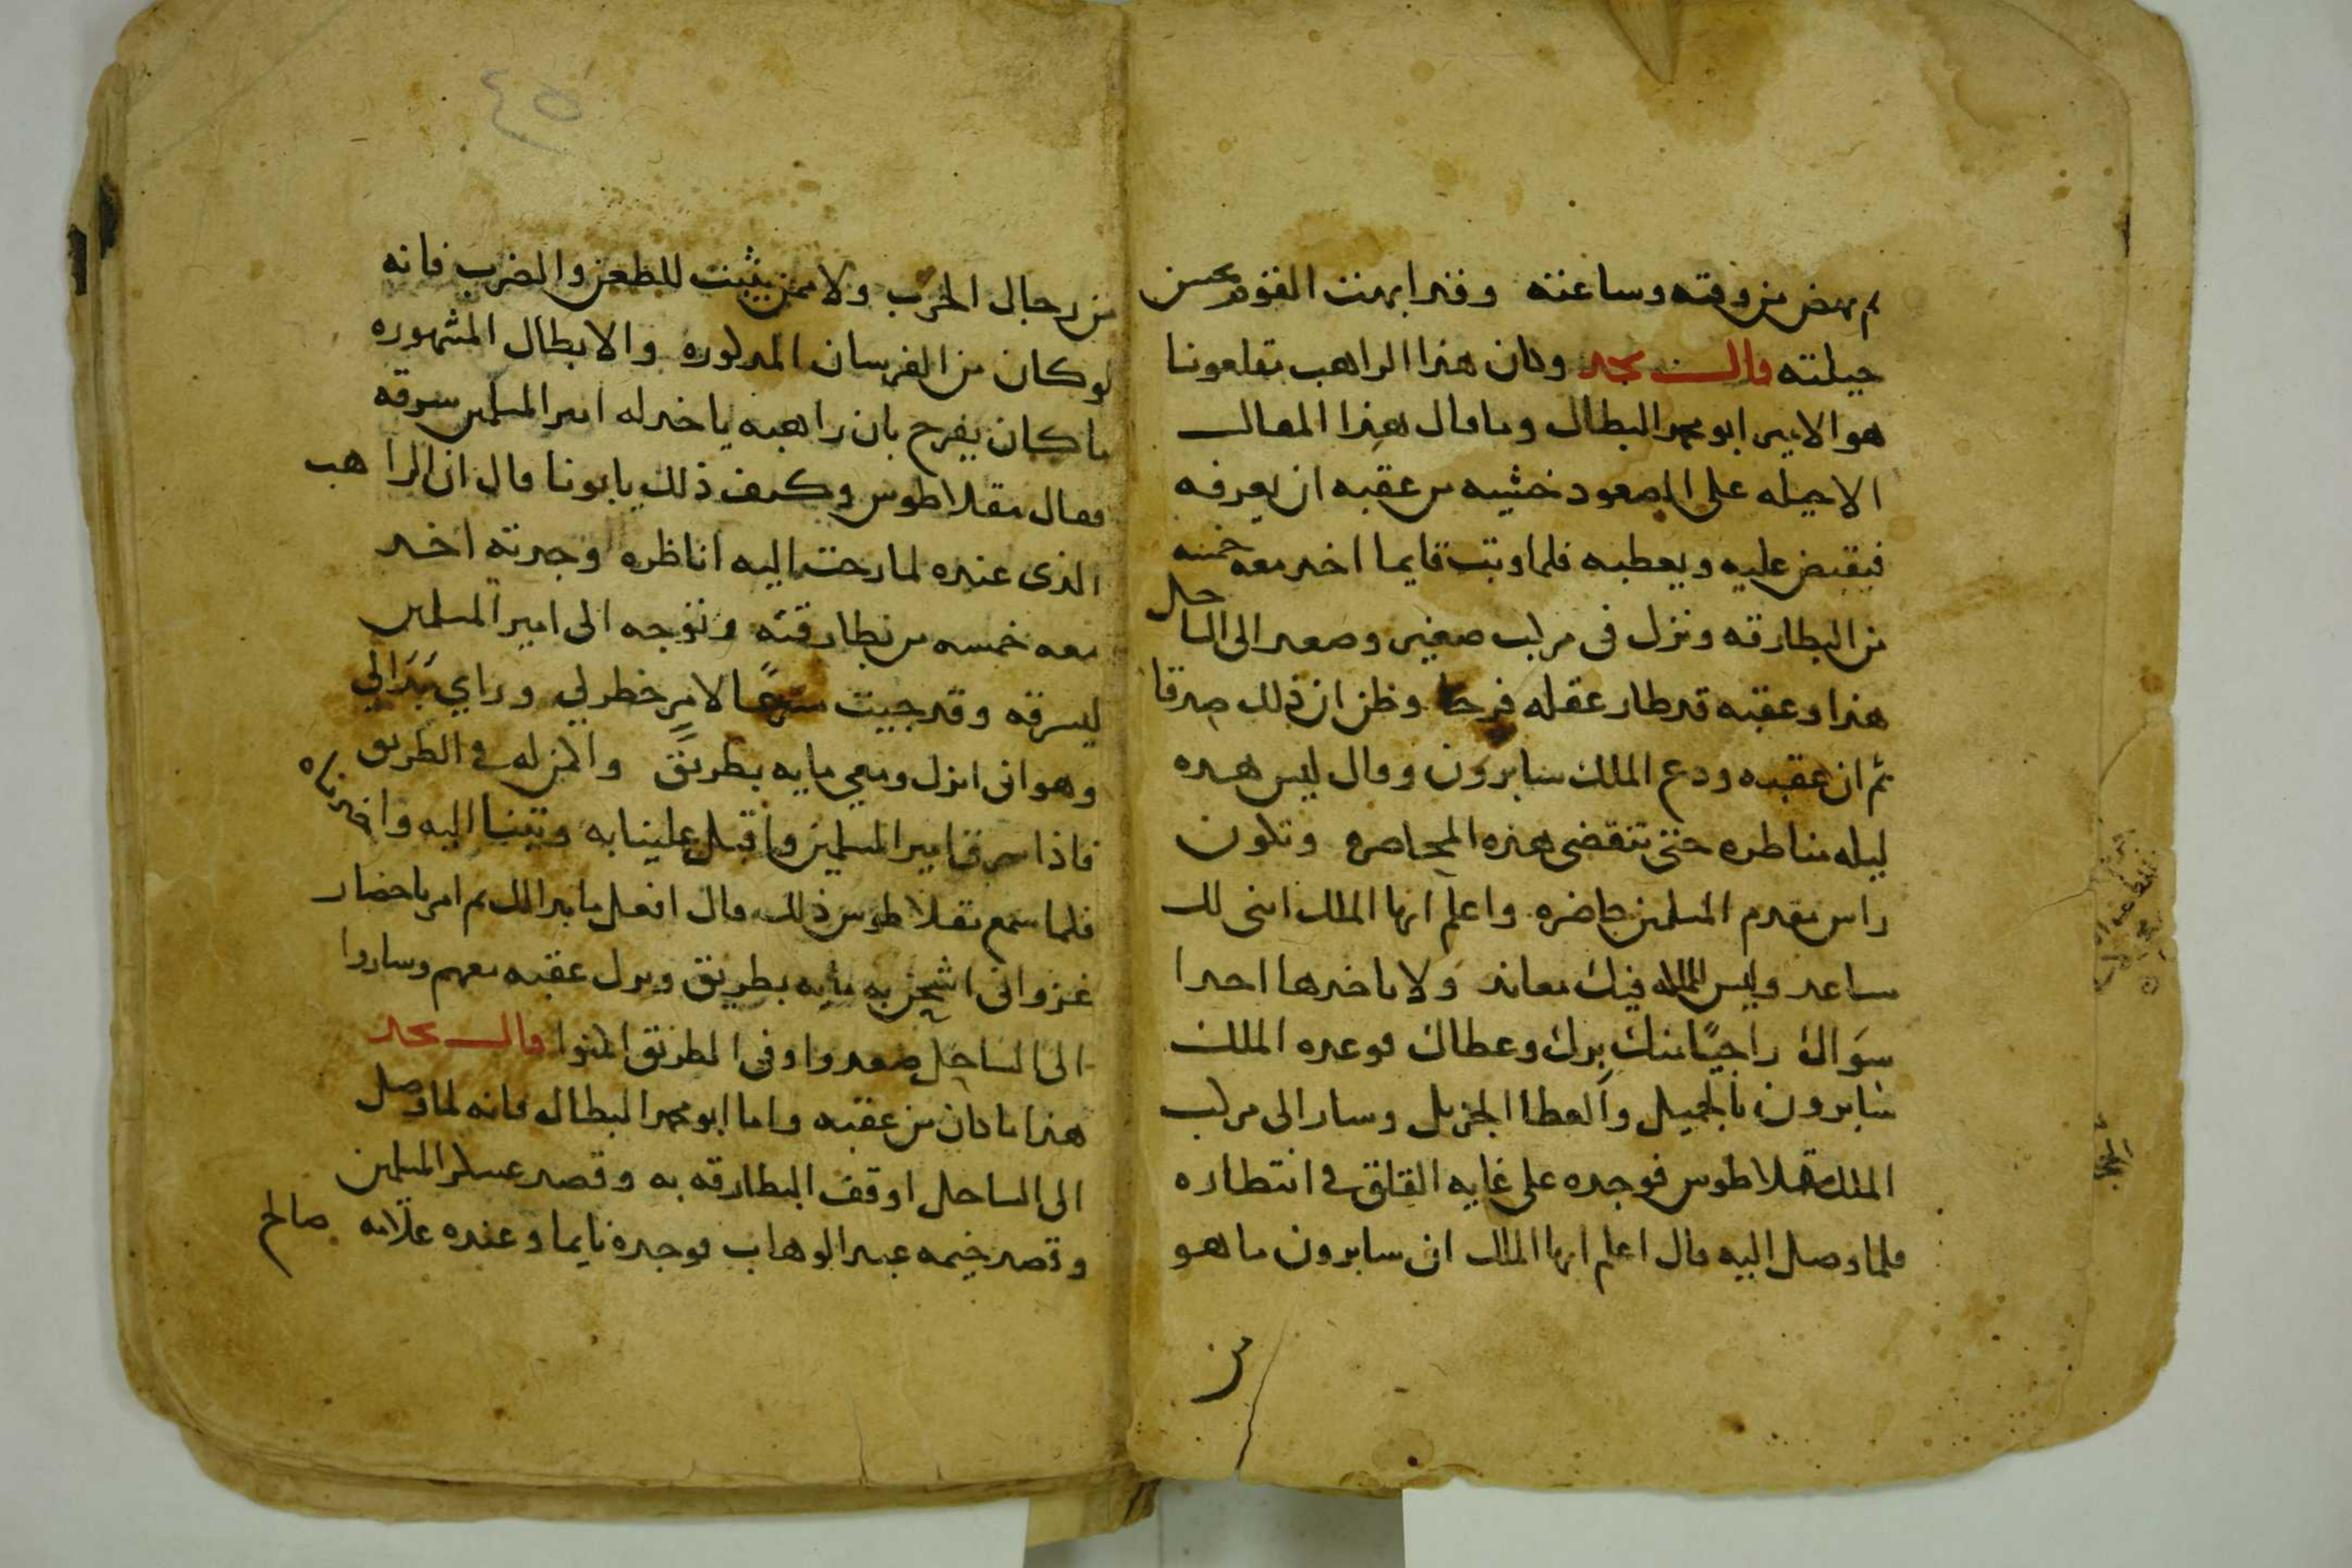 ثم نهض من وقته وساعته وقد ابهت القوم بحسن
حيلته قال نجد وكان هذا الراهب مقلعونا
هو الامير ابو محمد البطال وما قال هذا المقال
الا حيله على الصعود خشيه من عقبه ان يعرفه
فيقبض عليه ويعطبه فلما وثب قايما اخد معه خمسه
من البطارقه ونزل فى مركب صغير وصعد الى الساحل
هذا وعقبه قد طار عقله فرحا وظن ان ذلك صدقا
ثم ان عقبه ودع الملك سابرون وقال ليس هده
ليله مناظره حتى تنقضى هذه المحاصره وتكون
راس مقدم المسلمين حاضره واعلم ايها الملك اننى لك
مساعد وليس لمله فيك معاند ولا ياخدها احدا
سواك راجيًا منك برك وعطاك فوعده الملك
سابرون بالجميل والعطا الجزيل وسار الى مركب
الملك مقلاطوس فوجده على غايه القلق في انتطاره
فلما وصل اليه قال اعلم ايها الملك ان سابرون ما هو
من
٤٥
من رجال الحرب ولا ممن يثبت للطعن والضرب فانه
لو كان من الفرسان المدكوره والابطال المشهوره
ما كان يفرح بان راهبه ياخد له امير المسلمين سرقه
فقال مقلاطوس وكيف ذلك يابونا قال ان الراهب
الذى عنده لما رحت اليه اناظره وجدته اخد
معه خمسه من بطارقته وتوجه الى امير المسلمين
ليسرقه وقد جيت مسرعًا لامرٍ خطر لي وراي بَدَا لي
وهو انى انزل ومعي مايه بطريق واكمن له في الطريق
فاذا سرق امير المسلمين واقبل علينا به وثبنا اليه واخدناه
فلما سمع مقلاطوس ذلك قال افعل ما بدا لك ثم امر باحضار
غزوانى اشحن به مايه بطريق ونزل عقبه معهم وساروا
الى الساحل صعدوا وفى الطريق اكمنوا قال نجد
هذا ما كان من عقبه واما ابو محمد البطال فانه لما وصل
الى الساحل اوقف البطارقه به وقصد عسكر المسلمين
وقصد خيمه عبد الوهاب فوجده نايما وعنده علامه صالح